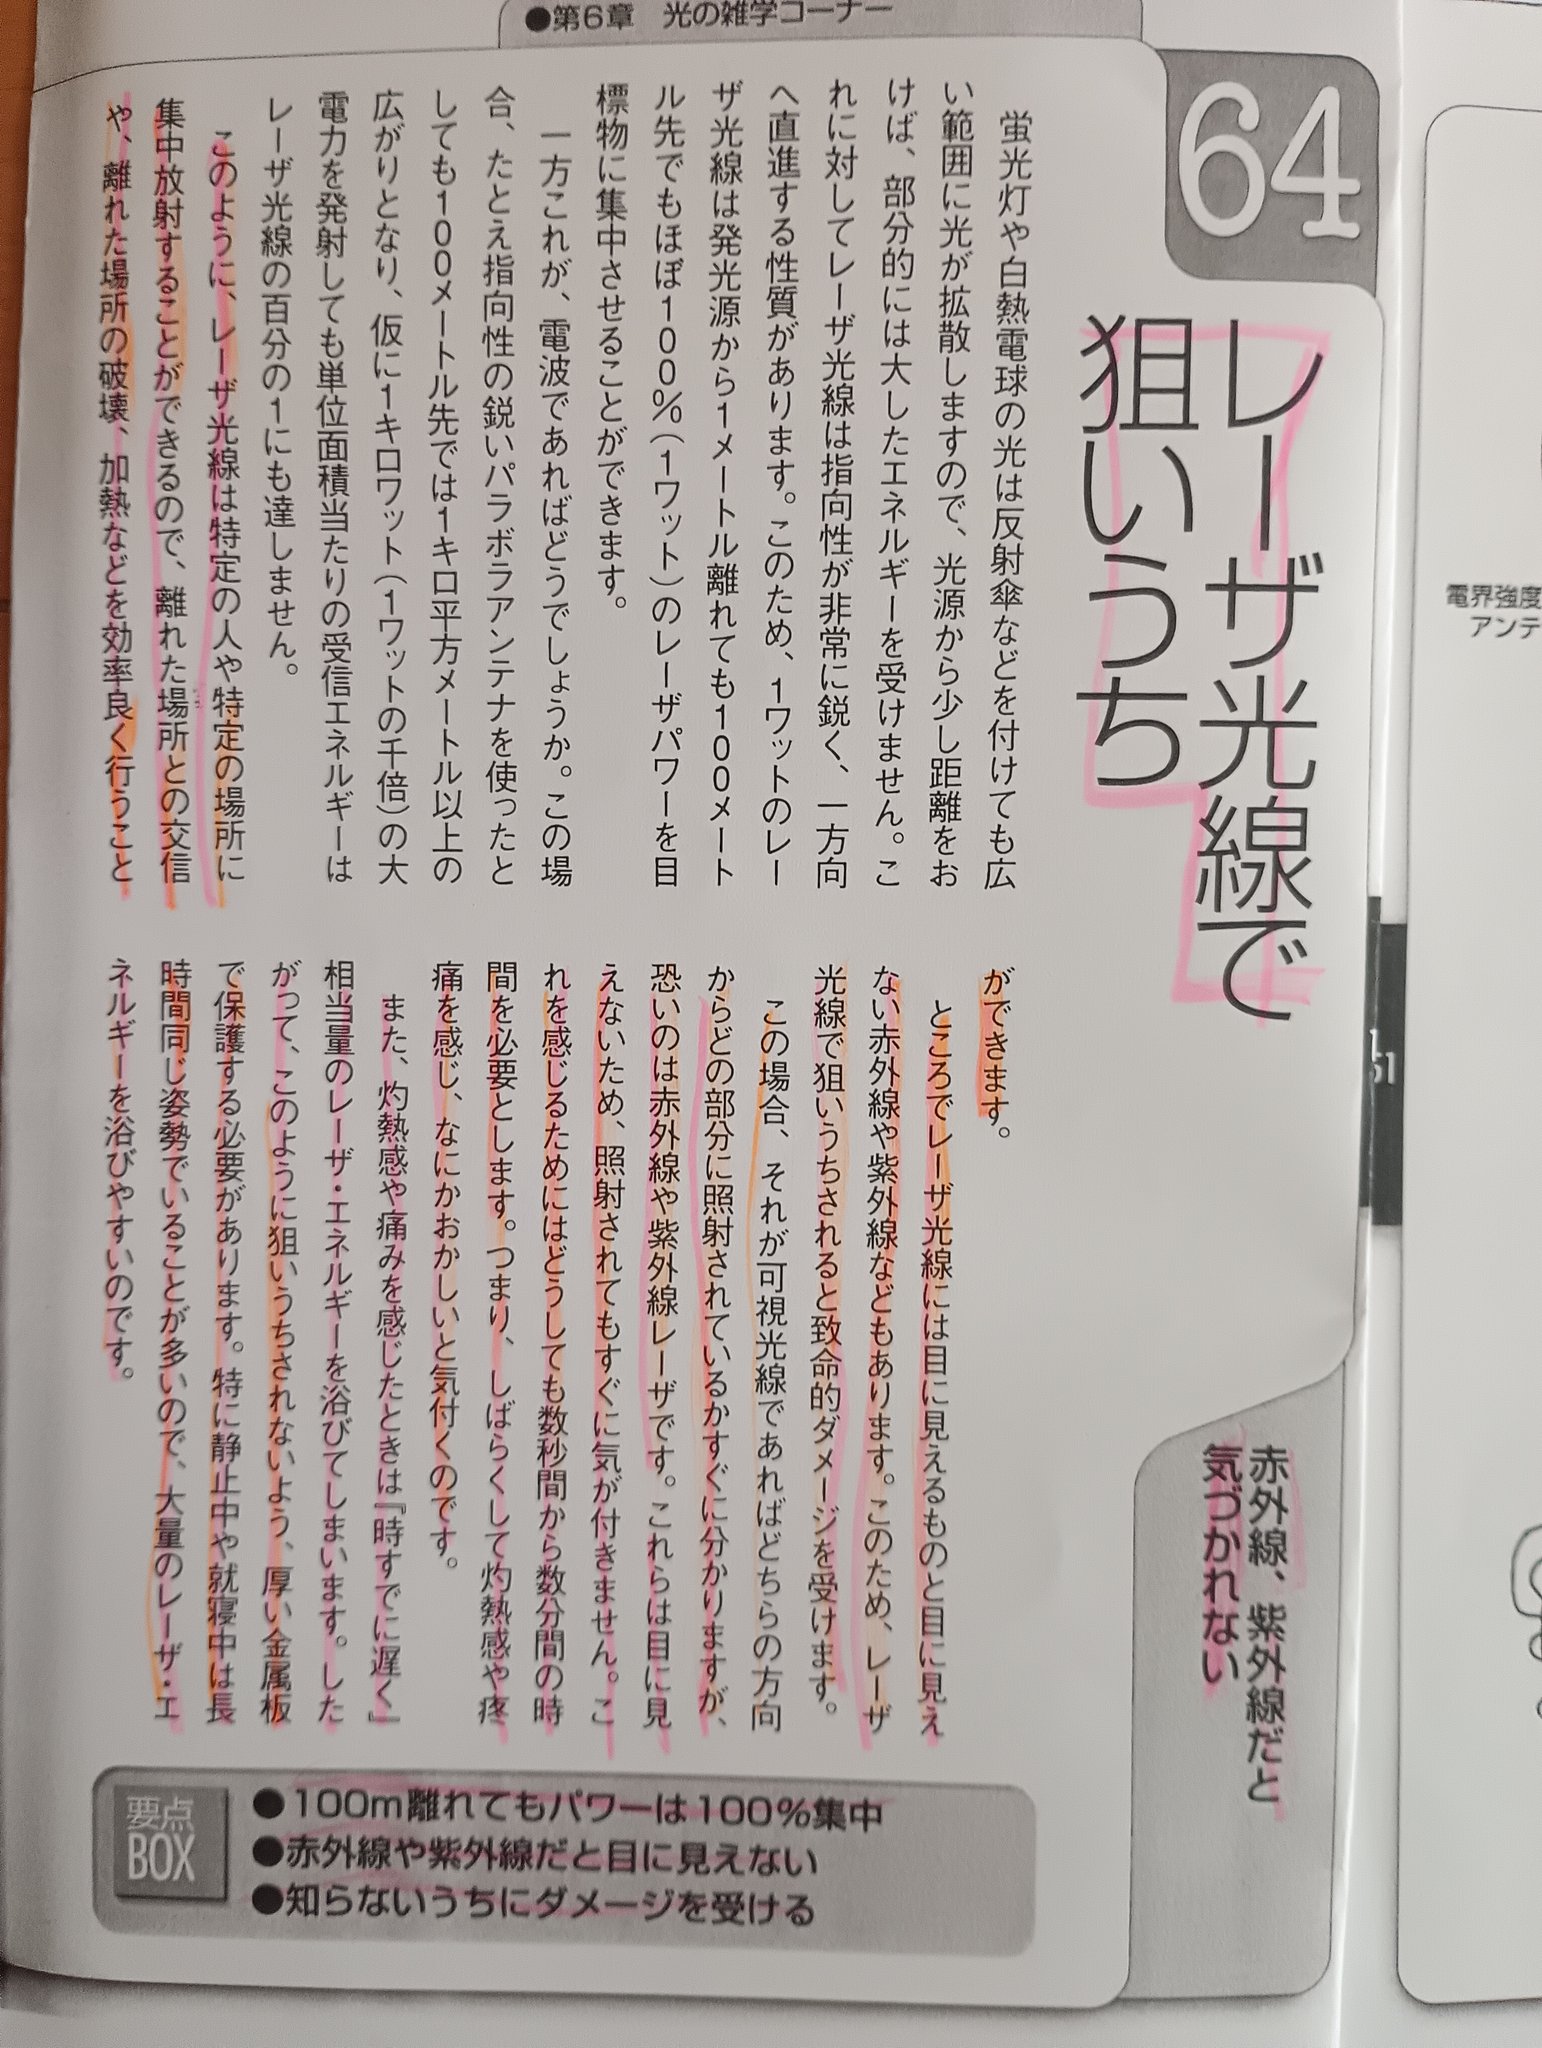 ●第6章　光の雑学コーナー
64
レーザ光線で
狙いうち
赤外線、紫外線だと
気づかれない
蛍光灯や白熱電球の光は反射傘などを付けても広
い範囲に光が拡散しますので、光源から少し距離をお
けば、部分的には大したエネルギーを受けません。こ
れに対してレーザ光線は指向性が非常に鋭く、一方向
へ直進する性質があります。このため、1ワットのレー
ザ光線は発光源から1メートル離れても100メート
ル先でもほぼ100%(1ワット)のレーザパワーを目
標物に集中させることができます。
一方これが、電波であればどうでしょうか。この場
合、たとえ指向性の鋭いパラボラアンテナを使ったと
しても100メートル先では1キロ平方メートル以上の
広がりとなり、仮に1キロワット(1ワットの千倍)の大
電力を発射しても単位面積当たりの受信エネルギーは
レーザ光線の百分の1にも達しません。
このように、レーザ光線は特定の人や特定の場所に
集中放射することができるので、離れた場所との交信
や、離れた場所の破壊、加熱などを効率良く行うこと
ができます。
ところでレーザ光線には目に見えるものと目に見え
ない赤外線や紫外線などもあります。このため、レーザ
光線で狙いうちされると致命的ダメージを受けます。
この場合、それが可視光線であればどちらの方向
からどの部分に照射されているかすぐに分かりますが、
恐いのは赤外線や紫外線レーザです。これらは目に見
えないため、照射されてもすぐに気が付きません。こ
れを感じるためにはどうしても数秒間から数分間の時
間を必要とします。つまり、しばらくして灼熱感や疼
痛を感じ、なにかおかしいと気付くのです。
また、灼熱感や痛みを感じたときは『時すでに遅く』
相当量のレーザ・エネルギーを浴びてしまいます。した
がって、このように狙いうちされないよう、厚い金属板
で保護する必要があります。特に静止中や就寝中は長
時間同じ姿勢でいることが多いので、大量のレーザ・エ
ネルギーを浴びやすいのです。
要点
BOX
●100m離れてもパワーは100%集中
●赤外線や紫外線だと目に見えない
●知らないうちにダメージを受ける
電界強度
アンテ